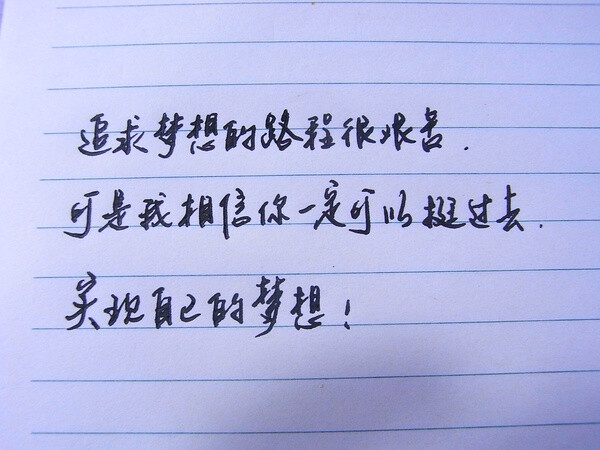 追求梦想的路程很艰苦.
可是我相信你一定可以挺过去.
实现自己的梦想!